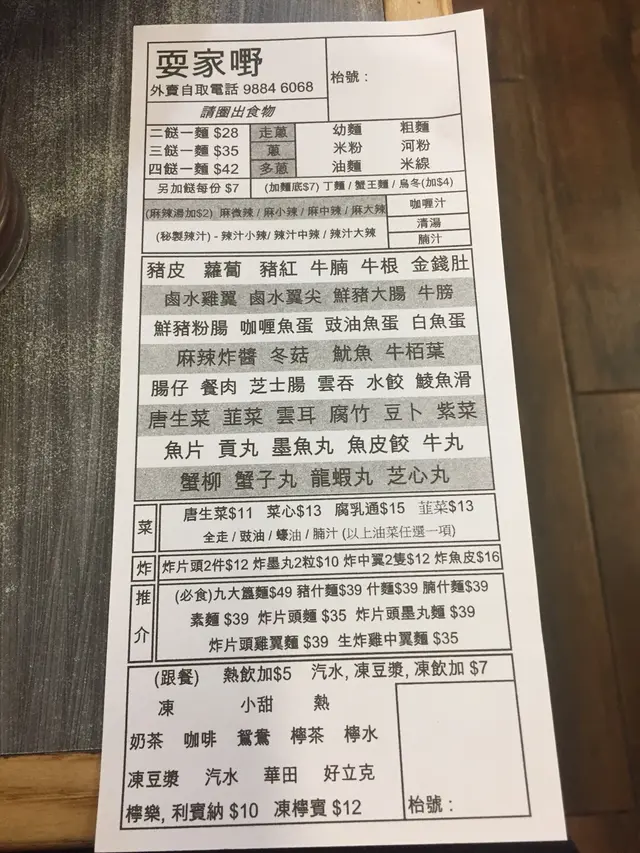 耍家嘢
外賣自取電話 9884 6068
枱號 :
請圈出食物
二餸一麵 $28 走蔥 幼麵 粗麵
三餸一麵 $35 蔥 米粉 河粉
四餸一麵 $42 多蔥 油麵 米線
另加餸每份 $7 (加麵底$7) 丁麵 / 蟹王麵 / 烏冬(加$4)
(麻辣湯加$2) 麻微辣 / 麻小辣 / 麻中辣 / 麻大辣 咖喱汁
清湯
(秘製辣汁) - 辣汁小辣/ 辣汁中辣 / 辣汁大辣
腩汁
豬皮 蘿蔔 豬紅 牛腩 牛根 金錢肚
鹵水雞翼 鹵水翼尖 鮮豬大腸 牛膀
鮮豬粉腸 咖喱魚蛋 豉油魚蛋 白魚蛋
麻辣炸醬 冬菇 魷魚 牛栢葉
腸仔 餐肉 芝士腸 雲吞 水餃 鯪魚滑
唐生菜 韮菜 雲耳 腐竹 豆卜 紫菜
魚片 貢丸 墨魚丸 魚皮餃 牛丸
蟹柳 蟹子丸 龍蝦丸 芝心丸
菜 唐生菜$11 菜心$13 腐乳通$15 韮菜$13
全走 / 豉油 / 蠔油 / 腩汁 (以上油菜任選一項)
炸 炸片頭2件$12 炸墨丸2粒$10 炸中翼2隻$12 炸魚皮$16
推介 (必食)九大簋麵$49 豬什麵$39 什麵$39 腩什麵$39
素麵 $39 炸片頭麵 $35 炸片頭墨丸麵 $39
炸片頭雞翼麵 $39 生炸雞中翼麵 $35
(跟餐) 熱飲加$5 汽水, 凍豆漿, 凍飲加 $7
凍 小甜 熱
奶茶 咖啡 鴛鴦 檸茶 檸水
凍豆漿 汽水 華田 好立克
檸樂, 利賓納 $10 凍檸賓 $12
枱號 :